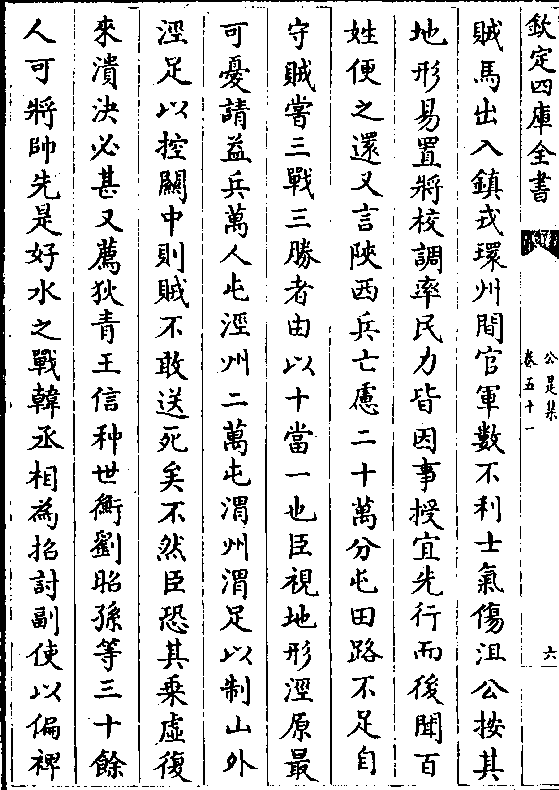 欽定四庫全書
公是集
卷五十一
六
賊馬出入鎮戎環州間官軍數不利士氣傷沮公按其
地形易置將校調率民力皆因事授宜先行而後聞百
姓便之還又言陜西兵亡慮二十萬分屯田路不足自
守賊嘗三戰三勝者由以十當一也臣視地形涇原最
可憂請益兵萬人屯涇州二萬屯渭州渭足以制山外
涇足以控關中則賊不敢送死矣不然臣恐其乗虛復
來潰決必甚又薦狄青王信种世衡劉昭孫等三十餘
人可將帥先是好水之戰韓丞相為招討副使以偏裨